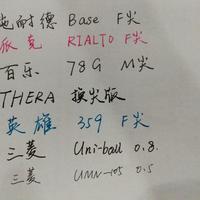 施耐德 Base F尖
派克 RIALTO F尖
百乐 78G M尖
THERA 换尖版
英雄 359 F尖
三菱 Uni-ball 0.8.
三菱 UMN-105 0.5